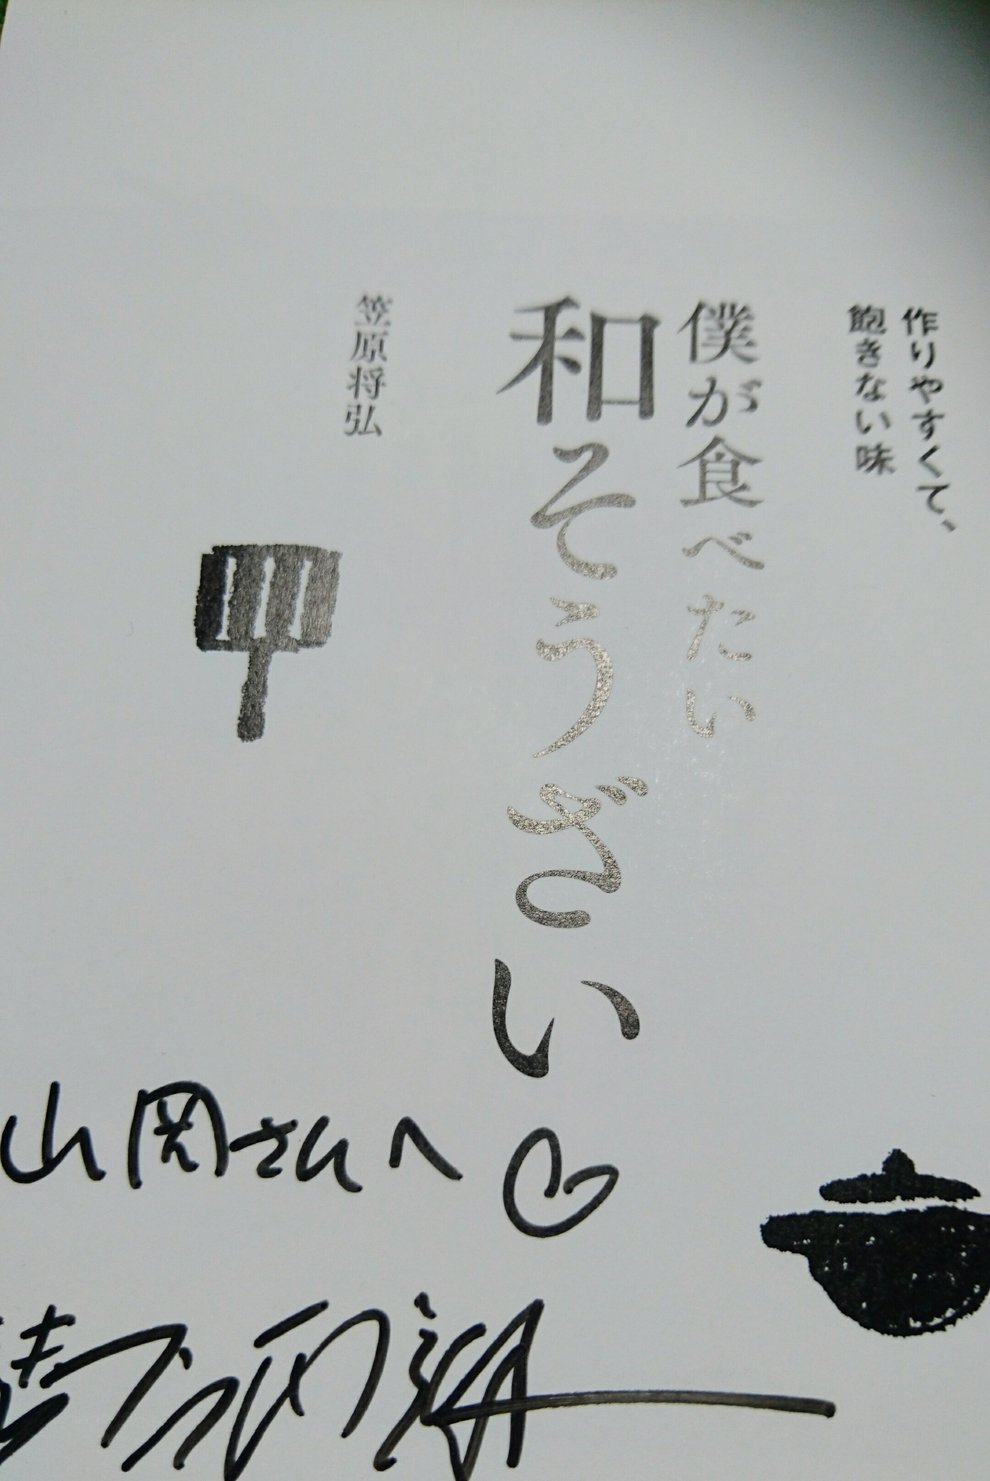 作りやすくて、
飽きない味
僕が食べたい
和そうざい
笠原将弘
山岡さんへ♡